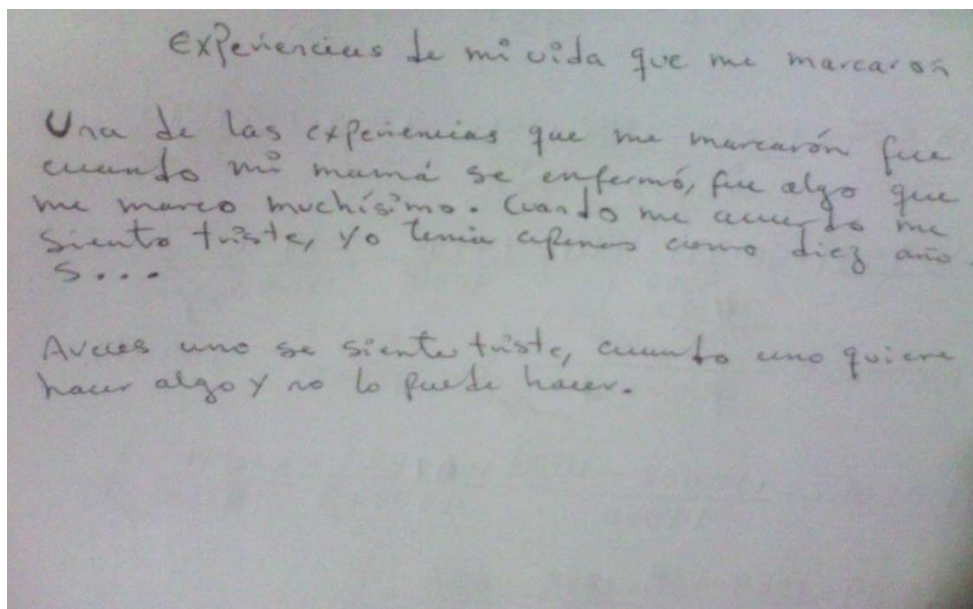 Experiencias de mi vida que me marcarón
Una de las experiencias que me marcarón fue
cuando mi mamá se enfermó, fue algo que
me marco muchísimo. Cuando me acuerdo me
siento triste, yo tenia apenas como diez año
s...
Aveces uno se siente triste, cuando uno quiere
hacer algo y no lo puede hacer.